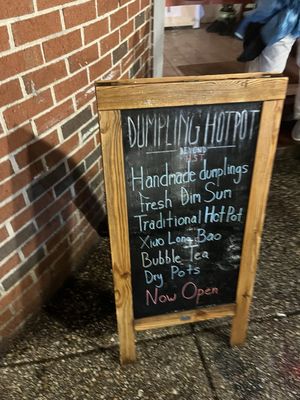 DUMPLING HOTPOT
BEYOND
UST
Handmade dumplings
Fresh Dim Sum
Traditional Hot Pot
Xiao Long Bao
Bubble Tea
Dry Pots
Now Open